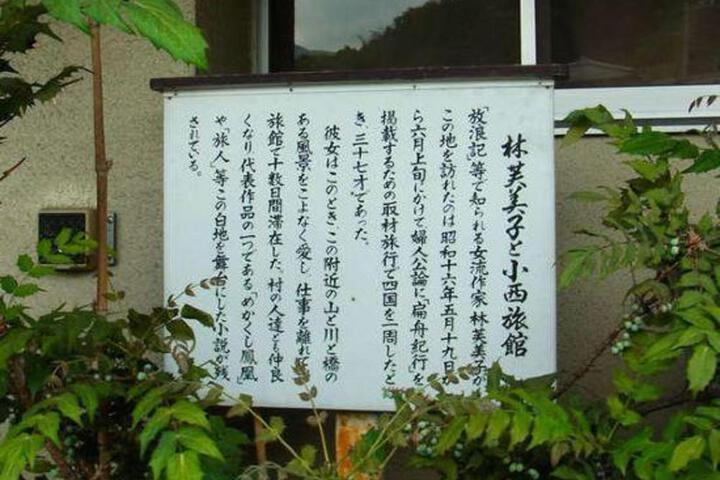 林芙美子と小西旅館
「放浪記」等で知られる女流作家林芙美子が
この地を訪れたのは昭和十六年五月十九日
ら六月上旬にかけて婦人公論に「扁舟紀行」を
掲載するための取材旅行で四国を一周したと
き三十七才であった。
彼女はこのとき、この附近の山と川と橋の
ある風景をこよなく愛し仕事を離れ
旅館で十数日間滞在した。村の人達とも仲良
くなり代表作品の一つである「めかくし鳳凰
や「旅人」等この白地を舞台にした小説が残
されている。